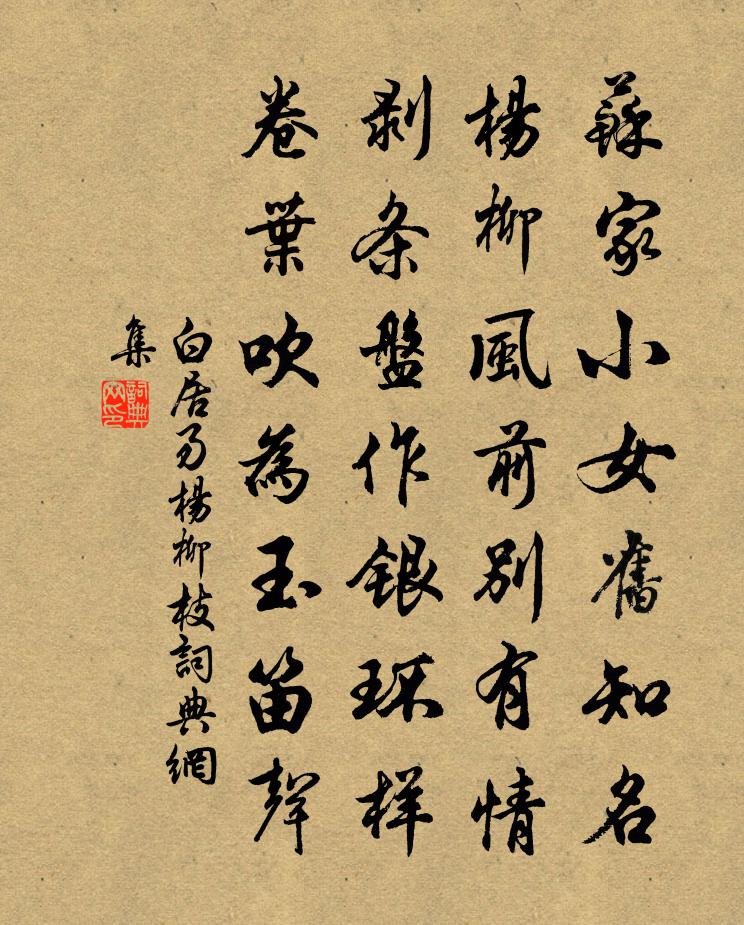 蘇家小女舊知名
楊柳風前別有情
剥条盤作銀环样
卷葉吹為玉笛聲
白居易楊柳枝詞典網
集
詞典網印